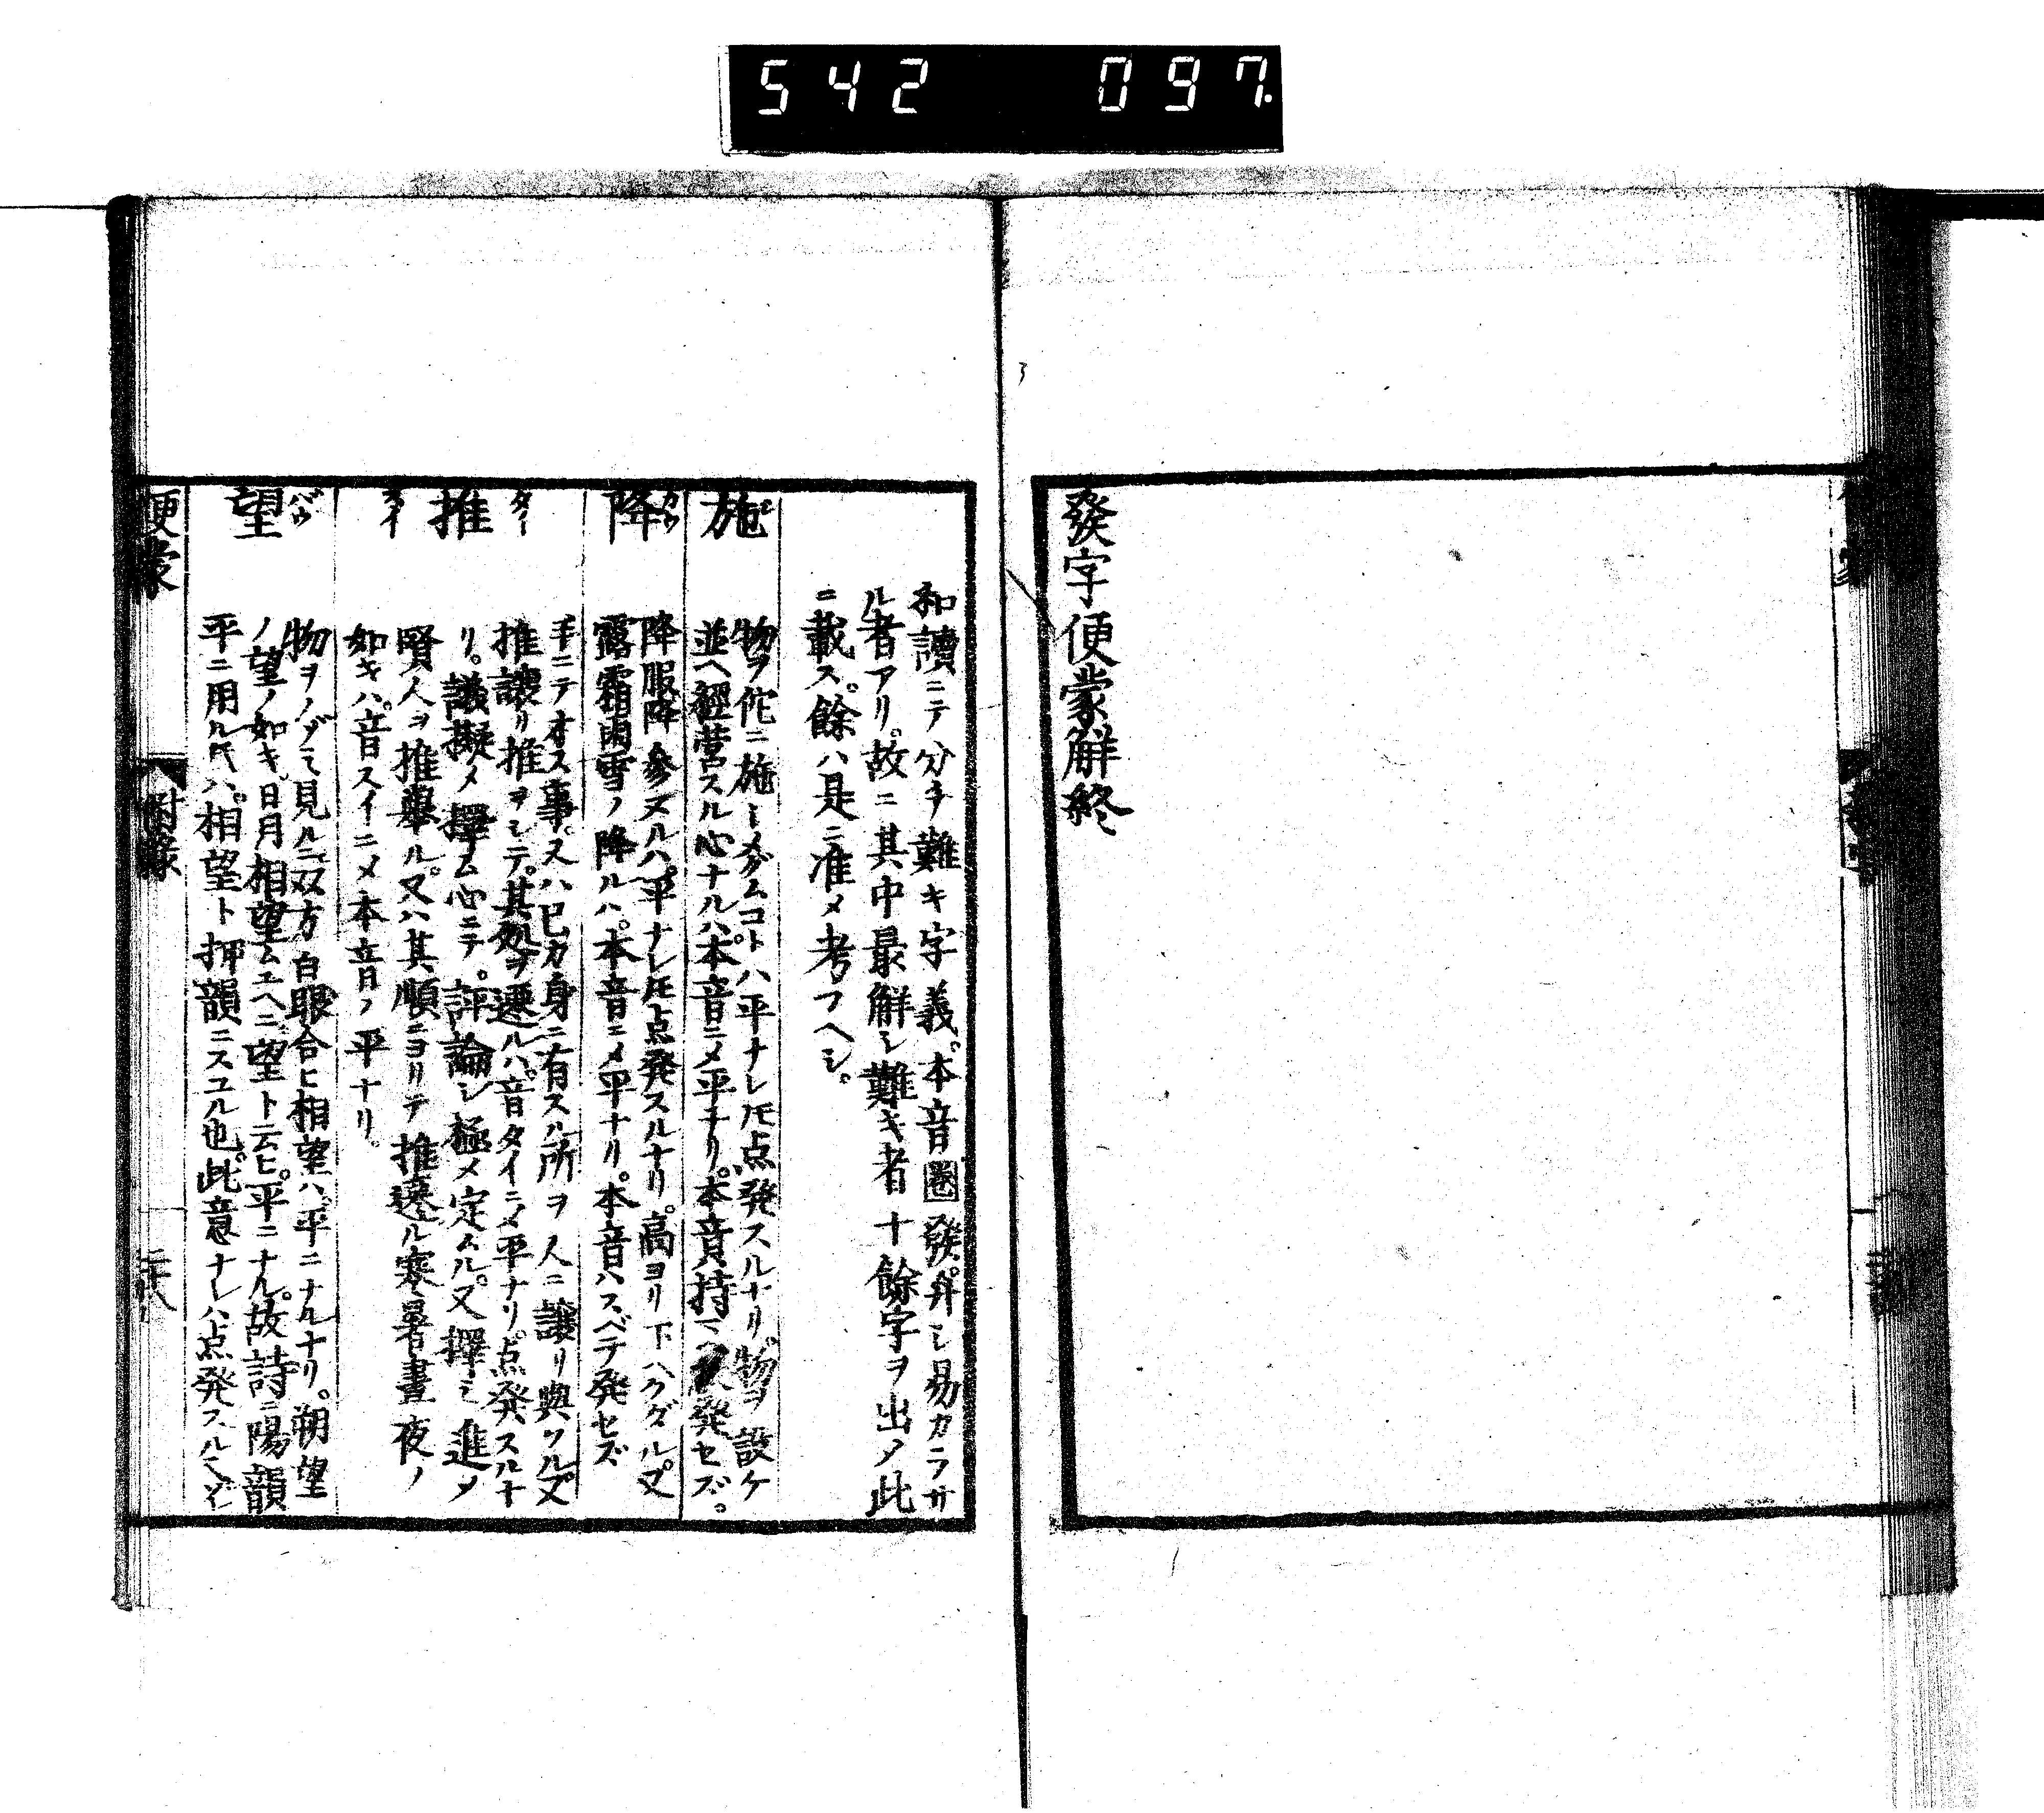 542 097.
發字便蒙解終
和讀ニテ分チ難キ字義。本音圈發。弁シ易カラサ
ル者アリ。故ニ其中最解シ難キ者十餘字ヲ出〆此
ニ載ス。餘ハ是ニ准〆考フヘシ。
施
物ヲ佗ニ施
コトハ平ナレ𪜈点発スルナリ。物ヲ設ケ
並ヘ經營スル心ナルハ。本音ニ〆平ナリ。本
発セズ。
降
降服降参ヌルハ。平ナレ𪜈点発スルナリ。高ヨリ下ヘクダル。又
露霜雨雪ノ降ルハ。本音ニ〆平ナリ。本音ハスベテ発セズ
推
手ニテオス事。又ハ已カ身ニ有スル所ヲ人ニ讓リ與ツル。又
推讓リ推ヲシテ。其処ヲ遷ルハ。音タイニ〆平ナリ。点発スルナ
リ。議擬〆擇ム心ニテ。評論シ極メ定ムル。又擇ミ進メ
賢人ヲ推舉ル。又ハ其順ニヨリテ推遷ル寒暑晝夜ノ
如キハ。音スイニ〆本音ノ平ナリ。
望
物ヲノゾミ見ルニ双方白眼合ヒ相望ハ。平ニナルナリ。朔望
ノ望ノ如キ。日月相望ムユヘニ。望ト云ヒ。平ニナル。故詩ニ陽韻
平ニ用ル𪜈ハ。相望ト押韻ニスユル也。此意ナレハ点発スル
便蒙
附錄
二十八